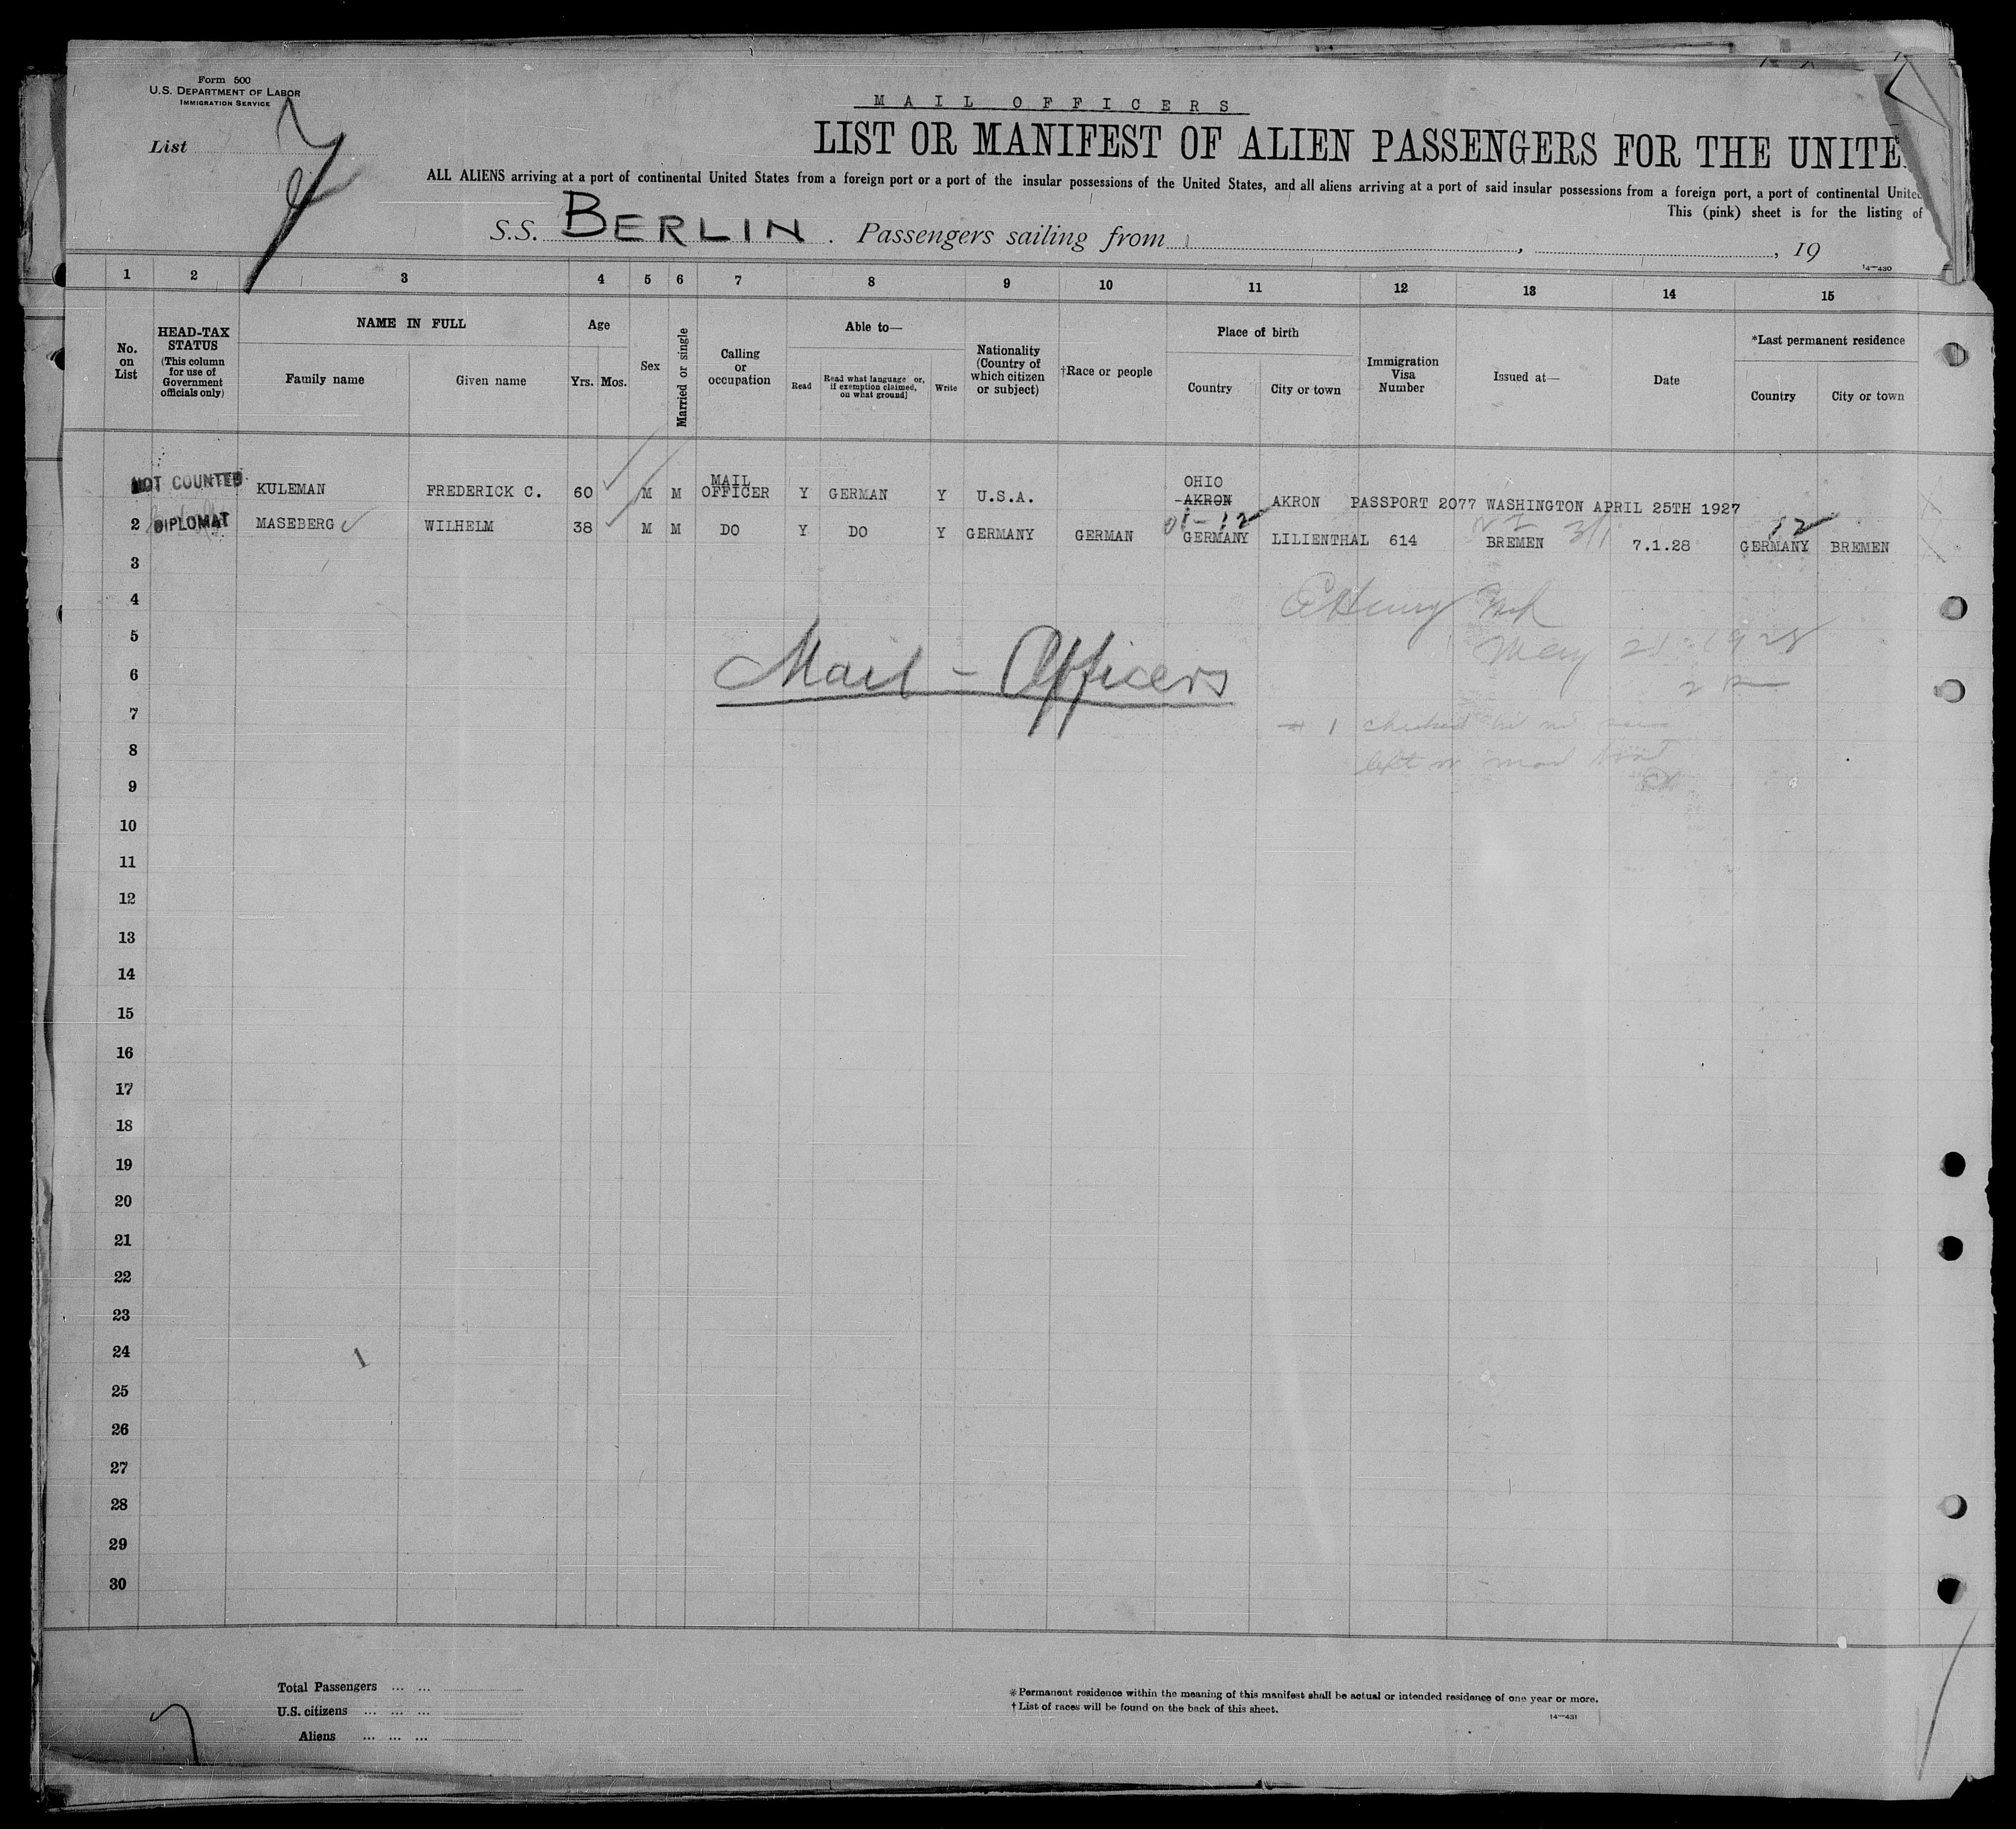 Form 500
U.S. DEPARTMENT OF LABOR
IMMIGRATION SERVICE
List
MAIL OFFICERS
LIST OR MANIFEST OF ALIEN PASSENGERS FOR THE UNITE
ALL ALIENS arriving at a port of continental United States from a foreign port or a port of the insular possessions of the United States, and all aliens arriving at a port of said insular possessions from a foreign port, a port of continental United
This (pink) sheet is for the listing of
S.S. BERLIN. Passengers sailing from , , 19
14—430
1 2 3 4 5 6 7 8 9 10 11 12 13 14 15
No. on List
HEAD-TAX STATUS
(This column for use of Government officials only)
NAME IN FULL
Family name
Given name
Age
Yrs. Mos.
Sex
Married or single
Calling or occupation
Able to—
Read
Read what language [or, if exemption claimed, on what ground]
Write
Nationality (Country of which citizen or subject)
†Race or people
Place of birth
Country
City or town
Immigration Visa Number
Issued at—
Date
*Last permanent residence
Country
City or town
NOT COUNTED KULEMAN FREDERICK C. 60 M M MAIL OFFICER Y GERMAN Y U.S.A. OHIO AKRON AKRON PASSPORT 2077 WASHINGTON APRIL 25TH 1927
2 DIPLOMAT MASEBERG WILHELM 38 M M DO Y DO Y GERMANY GERMAN GERMANY LILIENTHAL 614 BREMEN 7.1.28 12 GERMANY BREMEN
3
4
5
6
Mail - Officers
7
8
9
10
11
12
13
14
15
16
17
18
19
20
21
22
23
24
25
26
27
28
29
30
Total Passengers ... ...
U.S. citizens ... ... ...
Aliens ... ... ...
*Permanent residence within the meaning of this manifest shall be actual or intended residence of one year or more.
†List of races will be found on the back of this sheet.
14—431